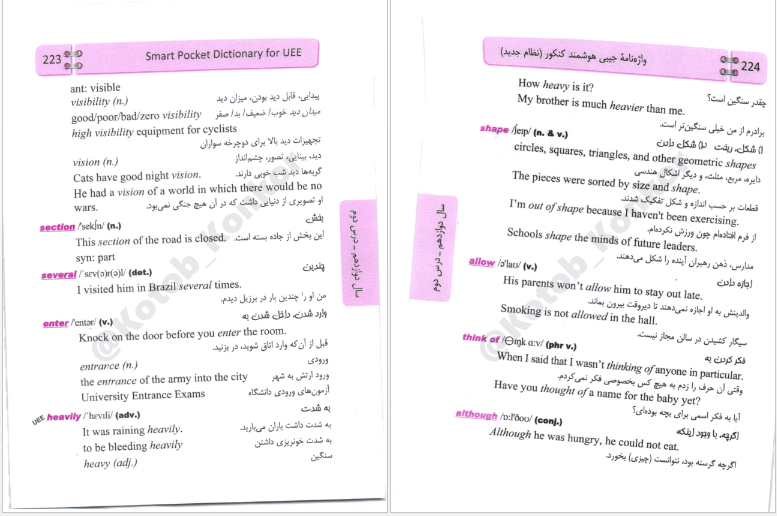 223
Smart Pocket Dictionary for UEE
ant: visible
visibility (n.) پیدایی، قابل دید بودن، میزان دید
good/poor/bad/zero visibility میدان دید خوب/ ضعیف/ بد/ صفر
high visibility equipment for cyclists
تجهیزات دید بالا برای دوچرخه سواران
vision (n.) دید، بینایی، تصور، چشم‌انداز
Cats have good night vision. گربه‌ها دید شب خوبی دارند.
He had a vision of a world in which there would be no
wars. او تصویری از دنیایی داشت که در آن هیچ جنگی نمی‌بود.
section /'sekʃn/ (n.) بخش
This section of the road is closed. این بخش از جاده بسته است.
syn: part
several /'sev(ə)r(ə)l/ (det.) چندین
I visited him in Brazil several times.
من او را چندین بار در برزیل دیدم.
enter /'entər/ (v.) وارد شدن، داخل شدن به
Knock on the door before you enter the room.
قبل از آن‌که وارد اتاق شوید، در بزنید.
entrance (n.) ورودی
the entrance of the army into the city ورود ارتش به شهر
University Entrance Exams آزمون‌های ورودی دانشگاه
UEE heavily /'hevɪli/ (adv.) به شدت
It was raining heavily. به شدت باران می‌بارید.
to be bleeding heavily به شدت خونریزی داشتن
heavy (adj.) سنگین
سال دوازدهم – درس دوم
@Kotob_Konkur
واژه‌نامهٔ جیبی هوشمند کنکور (نظام جدید)
224
How heavy is it? چقدر سنگین است؟
My brother is much heavier than me.
برادرم از من خیلی سنگین‌تر است.
shape /ʃeɪp/ (n. & v.) ۱) شکل، ریخت ۲) شکل دادن
circles, squares, triangles, and other geometric shapes
دایره، مربع، مثلث، و دیگر اشکال هندسی
The pieces were sorted by size and shape.
قطعات بر حسب اندازه و شکل تفکیک شدند.
I'm out of shape because I havcn't been exercising.
از فرم افتاده‌ام چون ورزش نکرده‌ام.
Schools shape the minds of future leaders.
مدارس، ذهن رهبران آینده را شکل می‌دهند.
allow /ə'laʊ/ (v.) اجازه دادن
His parents won't allow him to stay out late.
والدینش به او اجازه نمی‌دهند تا دیروقت بیرون بماند.
Smoking is not allowed in the hall.
سیگار کشیدن در سالن مجاز نیست.
think of /Өɪŋk ɑ:v/ (phr v.) فکر کردن به
When I said that I wasn't thinking of anyone in particular.
وقتی آن حرف را زدم به هیچ کس بخصوصی فکر نمی‌کردم.
Have you thought of a name for the baby yet?
آیا به فکر اسمی برای بچه بوده‌ای؟
although /ɒ:l'ðoʊ/ (conj.) اگرچه، با وجود اینکه
Although he was hungry, he could not eat.
اگرچه گرسنه بود، نتوانست (چیزی) بخورد.
سال دوازدهم – درس دوم
@Kotob_Konkur